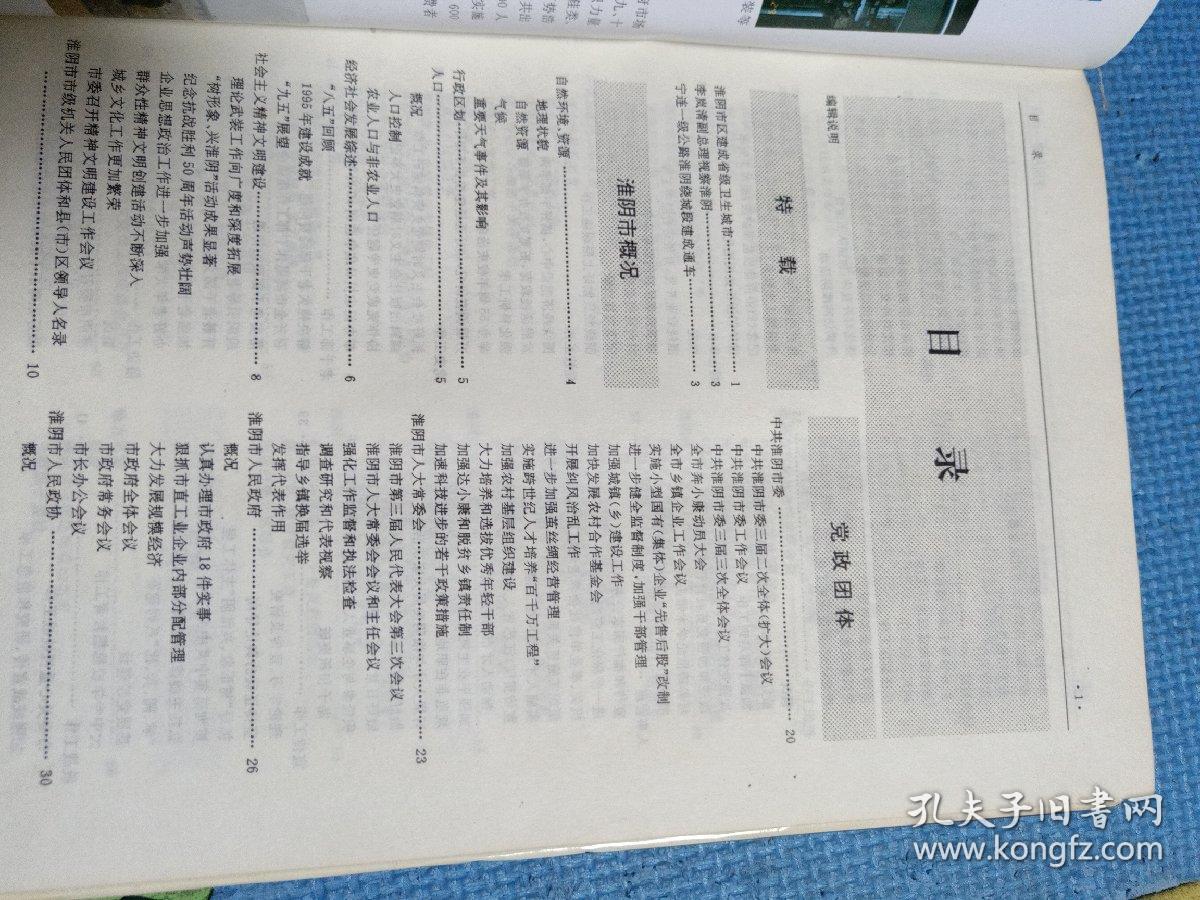 目 录
·1·
目 录
编辑说明
特 载
淮阴市区建成省级卫生城市……………1
李岚清副总理视察淮阴……………3
宁连一级公路淮阴绕城段建成通车……………3
淮阴市概况
自然环境、资源……………4
地理状貌
自然资源
气候
重要天气事件及其影响
行政区划……………5
人口……………5
概况
人口控制
农业人口与非农业人口
经济社会发展综述……………6
“八五”回顾
1995年建设成就
“九五”展望
社会主义精神文明建设……………8
理论武装工作向广度和深度拓展
“树形象、兴淮阴”活动成果显著
纪念抗战胜利50周年活动声势壮阔
企业思想政治工作进一步加强
群众性精神文明创建活动不断深入
城乡文化工作更加繁荣
市委召开精神文明建设工作会议
淮阴市市级机关人民团体和县(市)区领导人名录
……………10
党政团体
中共淮阴市委……………20
中共淮阴市委三届二次全体(扩大)会议
中共淮阴市委工作会议
中共淮阴市委三届三次全体会议
全市奔小康动员大会
全市乡镇企业工作会议
实施小型国有(集体)企业“先售后股”改制
进一步健全监督制度,加强干部管理
加强城镇(乡)建设工作
加快发展农村合作基金会
开展纠风治乱工作
进一步加强茧丝绸经营管理
实施跨世纪人才培养“百千万工程”
加强农村基层组织建设
大力培养和选拔优秀年轻干部
加强达小康和脱贫乡镇责任制
加速科技进步的若干政策措施
淮阴市人大常委会……………23
淮阴市第三届人民代表大会第三次会议
淮阴市人大常委会会议和主任会议
强化工作监督和执法检查
调查研究和代表视察
指导乡镇换届选举
发挥代表作用
淮阴市人民政府……………26
概况
认真办理市政府18件实事
狠抓市直工业企业内部分配管理
大力发展规模经济
市政府全体会议
市政府常务会议
市长办公会议
淮阴市人民政协……………30
概况
孔夫子旧书网
www.kongfz.com